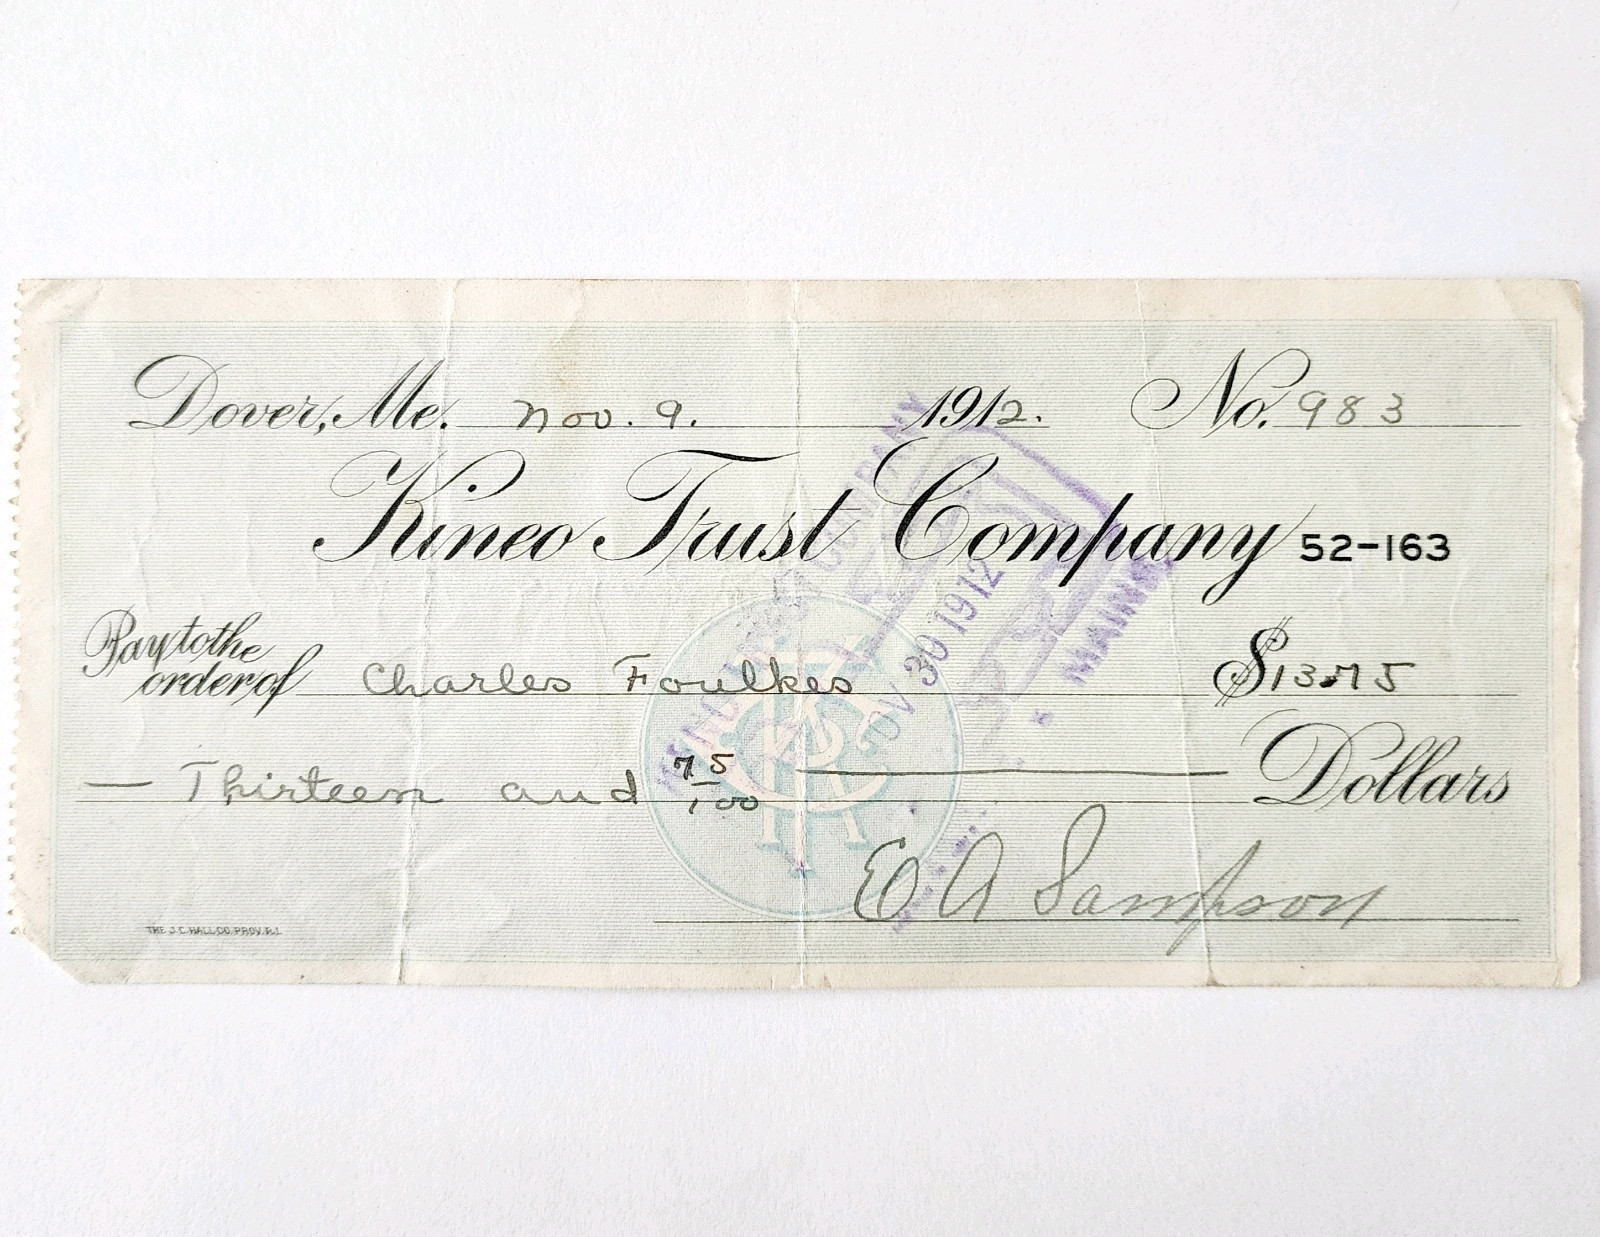 Dover, Me. Nov. 9. 1912. No. 983
Kineo Trust Company 52-163
Pay to the
order of Charles Foulkes $13.75
— Thirteen and 75/100 — Dollars
E A Sampson
THE J.C. HALL CO. PROV. R.I.
KINEO TRUST COMPANY
NOV 30 1912
MAINE